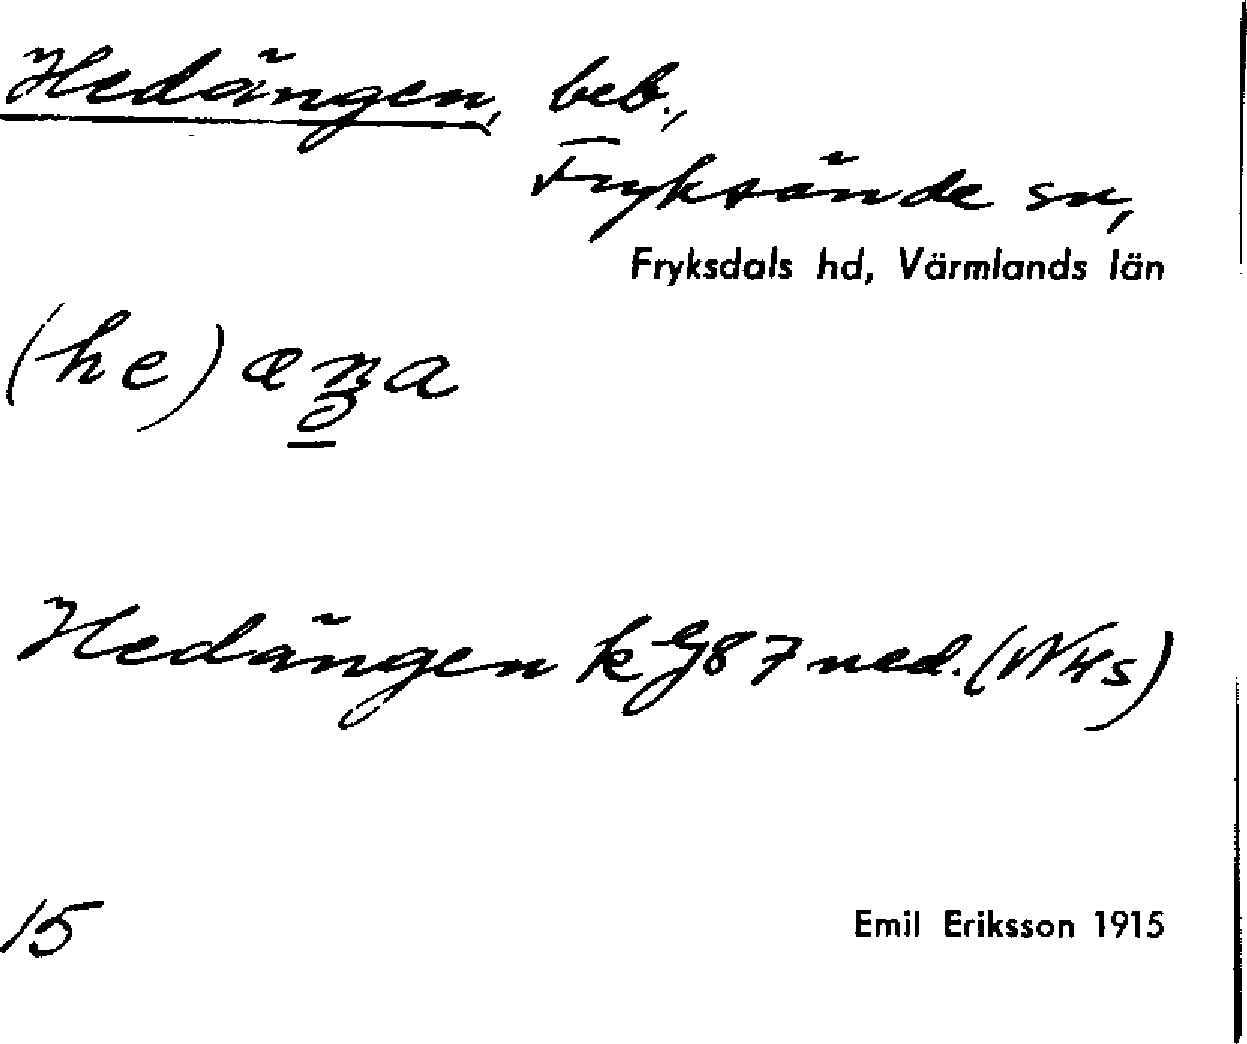 Hedängen, beb.,
Fryksände sn,
Fryksdals hd, Värmlands län
(he)
Hedängen k G87 ned.
15
Emil Eriksson 1915